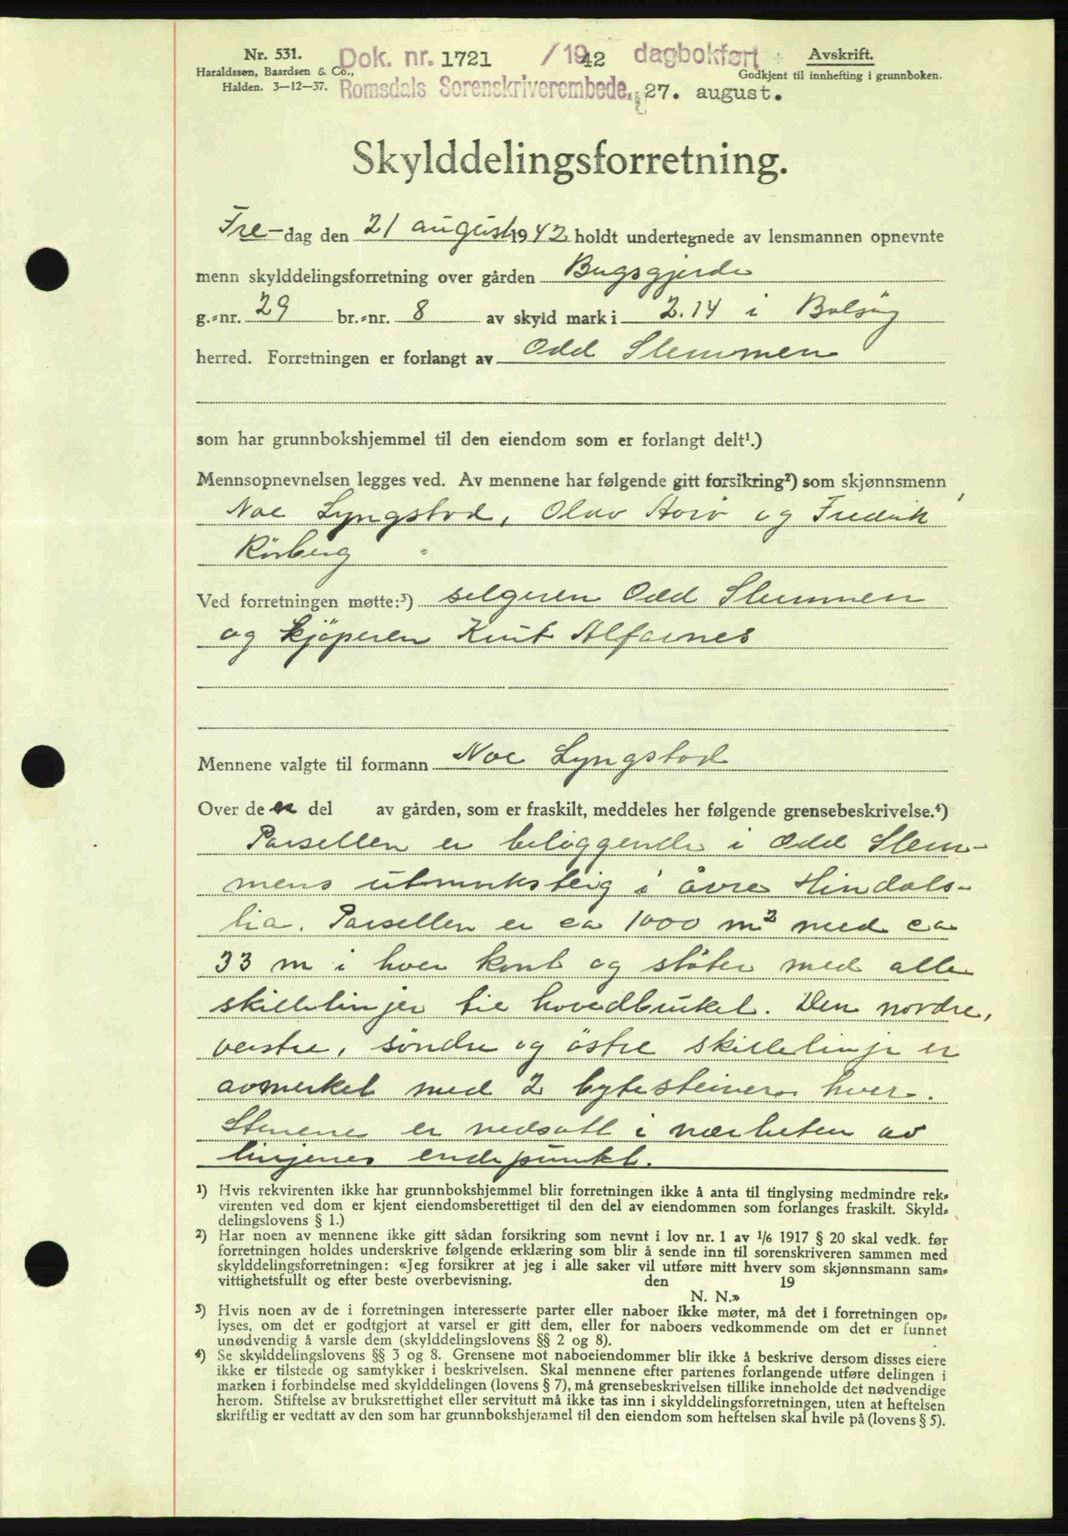 Nr. 531.
Haraldssen, Baardsen & Co.,
Halden. 3—12—37.
Dok. nr. 1721 /1942 dagbokført
Romsdals Sorenskriverembede, 27. august.
Avskrift.
Godkjent til innhefting i grunnboken.
Skylddelingsforretning.
Fre-dag den 21 august 1942 holdt undertegnede av lensmannen opnevnte
menn skylddelingsforretning over gården Bugsgjerde
g.=nr. 29 br.=nr. 8 av skyld mark i 2.14 i Bolsøy
herred. Forretningen er forlangt av Odd Slemmen
som har grunnbokshjemmel til den eiendom som er forlangt delt¹.)
Mennsopnevnelsen legges ved. Av mennene har følgende gitt forsikring²) som skjønnsmenn
Noe Lyngstad, Olav og Fredrik
Rörberg
Ved forretningen møtte:³) selgeren Odd Slemmen
og kjöperen Knut Alfarnes
Mennene valgte til formann Noe Lyngstad
Over de n del av gården, som er fraskilt, meddeles her følgende grensebeskrivelse.⁴)
Parsellen er beliggende i Odd Slem-
mens utmarksteig i övre Hindals-
lia. Parsellen er ca 1000 m² med ca
33 m i hver kant og stöter med alle
skillelinjer til hovedbruket. Den nordre,
vestre, söndre og östre skillelinje er
avmerket med 2 bytesteiner hver.
Stenene er nedsatt i nærheten av
linjenes endepunkt.
¹) Hvis rekvirenten ikke har grunnbokshjemmel blir forretningen ikke å anta til tinglysing medmindre rek=
virenten ved dom er kjent eiendomsberettiget til den del av eiendommen som forlanges fraskilt. Skyld=
delingslovens § 1.)
²) Har noen av mennene ikke gitt sådan forsikring som nevnt i lov nr. 1 av 1/6 1917 § 20 skal vedk. før
forretningen holdes underskrive følgende erklæring som blir å sende inn til sorenskriveren sammen med
skylddelingsforretningen: «Jeg forsikrer at jeg i alle saker vil utføre mitt hverv som skjønnsmann sam=
vittighetsfullt og efter beste overbevisning. den 19
N. N.»
³) Hvis noen av de i forretningen interesserte parter eller naboer ikke møter, må det i forretningen op=
lyses, om det er godtgjort at varsel er gitt dem, eller for naboers vedkommende om det er funnet
unødvendig å varsle dem (skylddelingslovens §§ 2 og 8).
⁴) Se skylddelingslovens §§ 3 og 8. Grensene mot naboeiendommer blir ikke å beskrive dersom disses eiere
ikke er tilstede og samtykker i beskrivelsen. Skal mennene efter partenes forlangende utføre delingen i
marken i forbindelse med skylddelingen (lovens § 7), må grensebeskrivelsen tillike inneholde det nødvendige
herom. Stiftelse av bruksrettighet eller servitutt må ikke tas inn i skylddelingsforretningen, uten at heftelsen
skriftlig er vedtatt av den som har grunnbokshjemmel til den eiendom som heftelsen skal hvile på (lovens § 5).